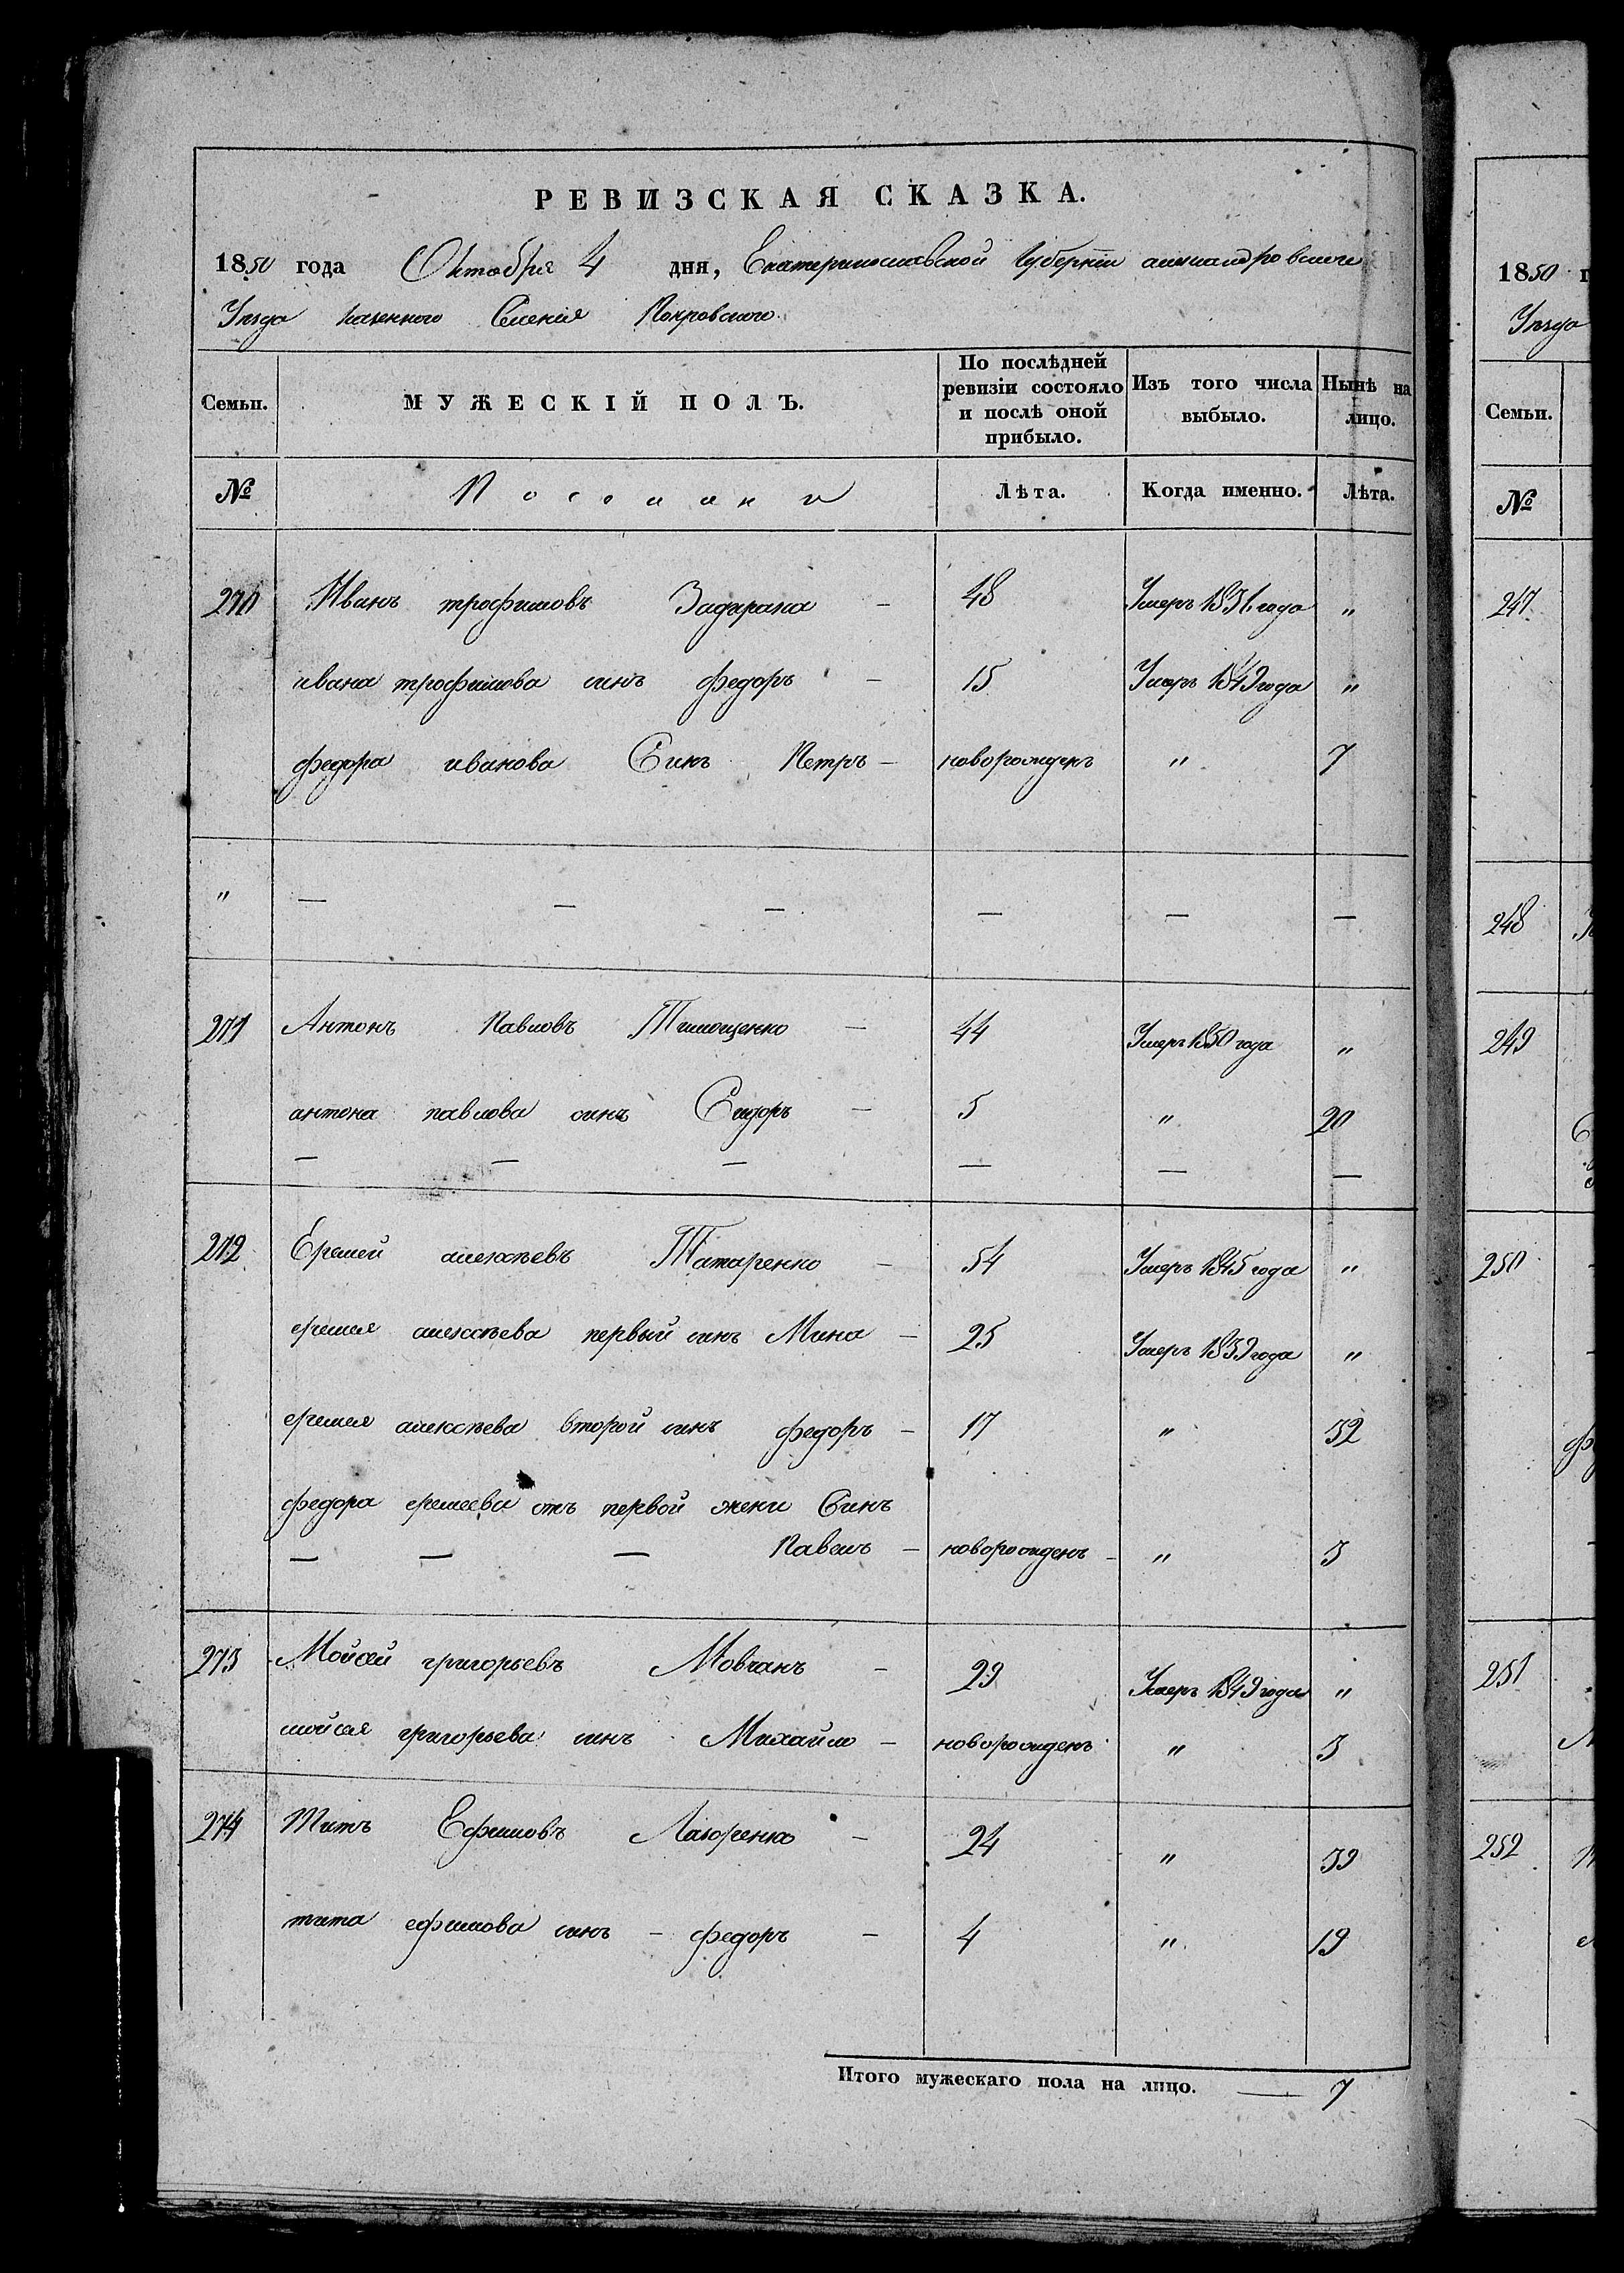 РЕВИЗСКАЯ СКАЗКА.
1850 года Октября 4 дня, Екатеринославской Губернїи александровского
Уѣзда казенного Селения Покровского.
Семьи. МУЖЕСКІЙ ПОЛЪ. По послѣдней ревизіи состояло и послѣ оной прибыло. Изъ того числа выбыло. Нынѣ на лицо.
№ Поселяни Лѣта. Когда именно. Лѣта.
270 Иванъ трофимовъ Задирака — 48 Умеръ 1831 года "
ивана трофимова синъ федоръ — 15 Умеръ 1849 года "
федора иванова Синъ Петръ — новорожденъ " 7
" — — — — — —
271 Антонъ Павловъ Тимощенко — 44 Умеръ 1850 года "
антона павлова синъ Сидоръ — 5 " 20
— — — — — —
272 Еремей алексѣевъ Татаренко — 54 Умеръ 1845 года "
еремея алексѣева первый синъ Мина — 25 Умеръ 1839 года "
еремея алексѣева второй синъ федоръ — 17 " 32
федора еремеева отъ первой жени Синъ
— — — Павелъ — новорожденъ — " 3
273 Мойсей григорьевъ Мовчанъ — 29 Умеръ 1849 года "
мойсея григорьева синъ Михайло — новорожденъ " 3
274 Титъ Ефимовъ Лазоренко — 24 " 39
тита ефимова синъ — федоръ — 4 " 19
Итого мужескаго пола на лицо. — 7
1850 г
Уѣзда
Семьи.
№
247
248
249
250
251
252